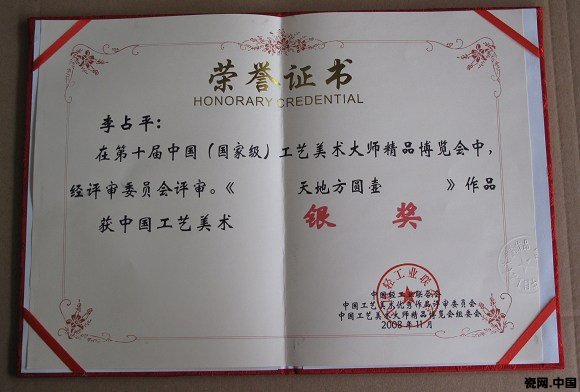 荣誉证书
HONORARY CREDENTIAL
李占平：
在第十届中国（国家级）工艺美术大师精品博览会中，
经评审委员会评审。《 天地方圆壶 》作品
获中国工艺美术 银奖
轻工业联
中国轻工业联合会
中国工艺美术优秀作品评审委员会
中国工艺美术大师精品博览会组委会
2008年11月
瓷网.中国